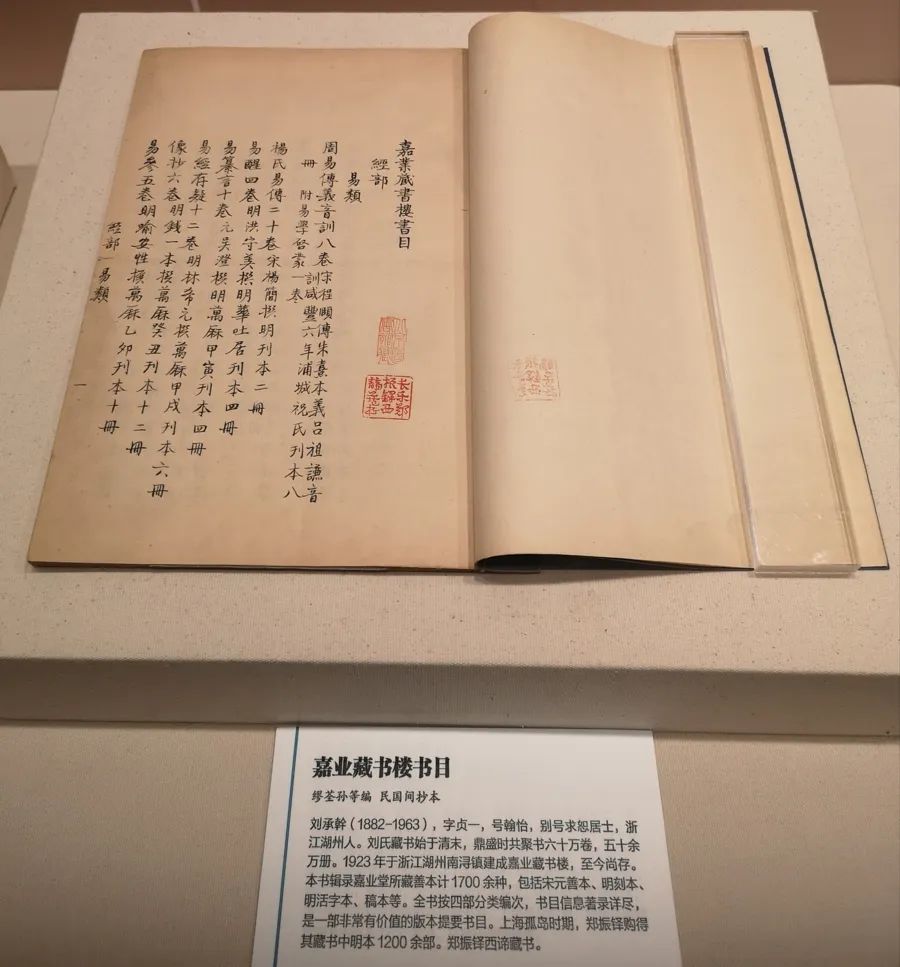 嘉業藏書樓書目
經部
易類
周易傳義音訓八卷宋程頤傳朱熹本義呂祖謙音
訓咸豐六年浦城祝氏刊本八
冊 附易學啓蒙一卷
楊氏易傳二十卷宋楊簡撰明刊本二冊
易醒四卷明洪守美撰明華吐居刊本四冊
易纂言十卷元吳澄撰明萬厤甲寅刊本四冊
易經存疑十二卷明林希元撰萬厤甲戌刊本六冊
像抄六卷明錢一本撰萬厤癸丑刊本十二冊
易參五卷明喻安性撰萬厤乙卯刊本十冊
經部 易類 一
长乐郑
振鐸西
諦藏書
嘉业藏书楼书目
缪荃孙等编 民国间抄本
刘承幹（1882-1963），字贞一，号翰怡，别号求恕居士，浙
江湖州人。刘氏藏书始于清末，鼎盛时共聚书六十万卷，五十余
万册。1923 年于浙江湖州南浔镇建成嘉业藏书楼，至今尚存。
本书辑录嘉业堂所藏善本计 1700 余种，包括宋元善本、明刻本、
明活字本、稿本等。全书按四部分类编次，书目信息著录详尽，
是一部非常有价值的版本提要书目。上海孤岛时期，郑振铎购得
其藏书中明本 1200 余部。郑振铎西谛藏书。